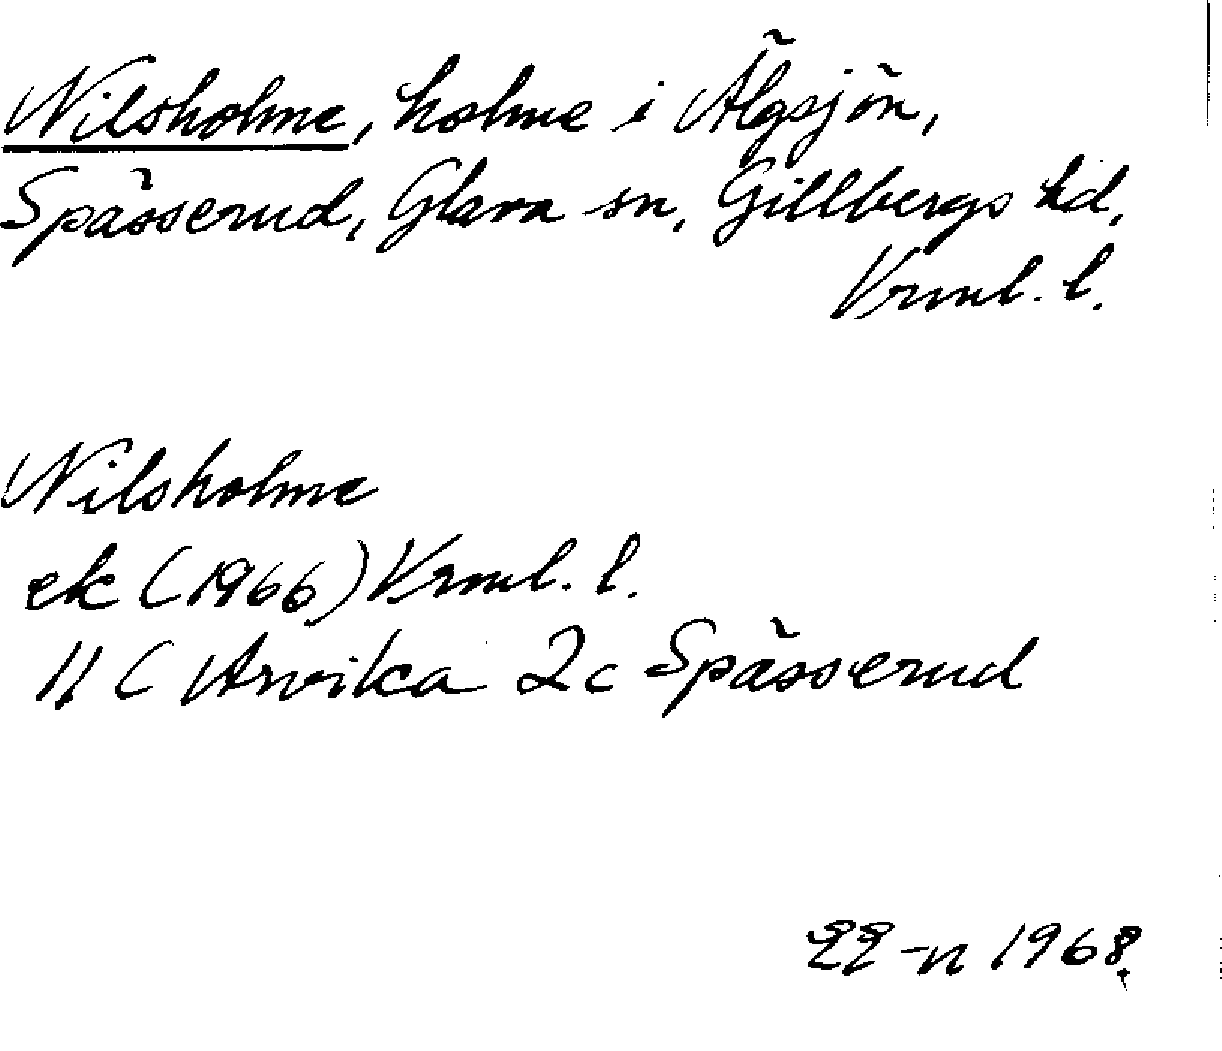 Nilsholme, holme i Älgsjön,
Spässerud, Glava sn, Gillbergs hd,
Vrml. l.
Nilsholme
ek (1966) Vrml. l.
11 C Arvika 2c Spässerud
1968.